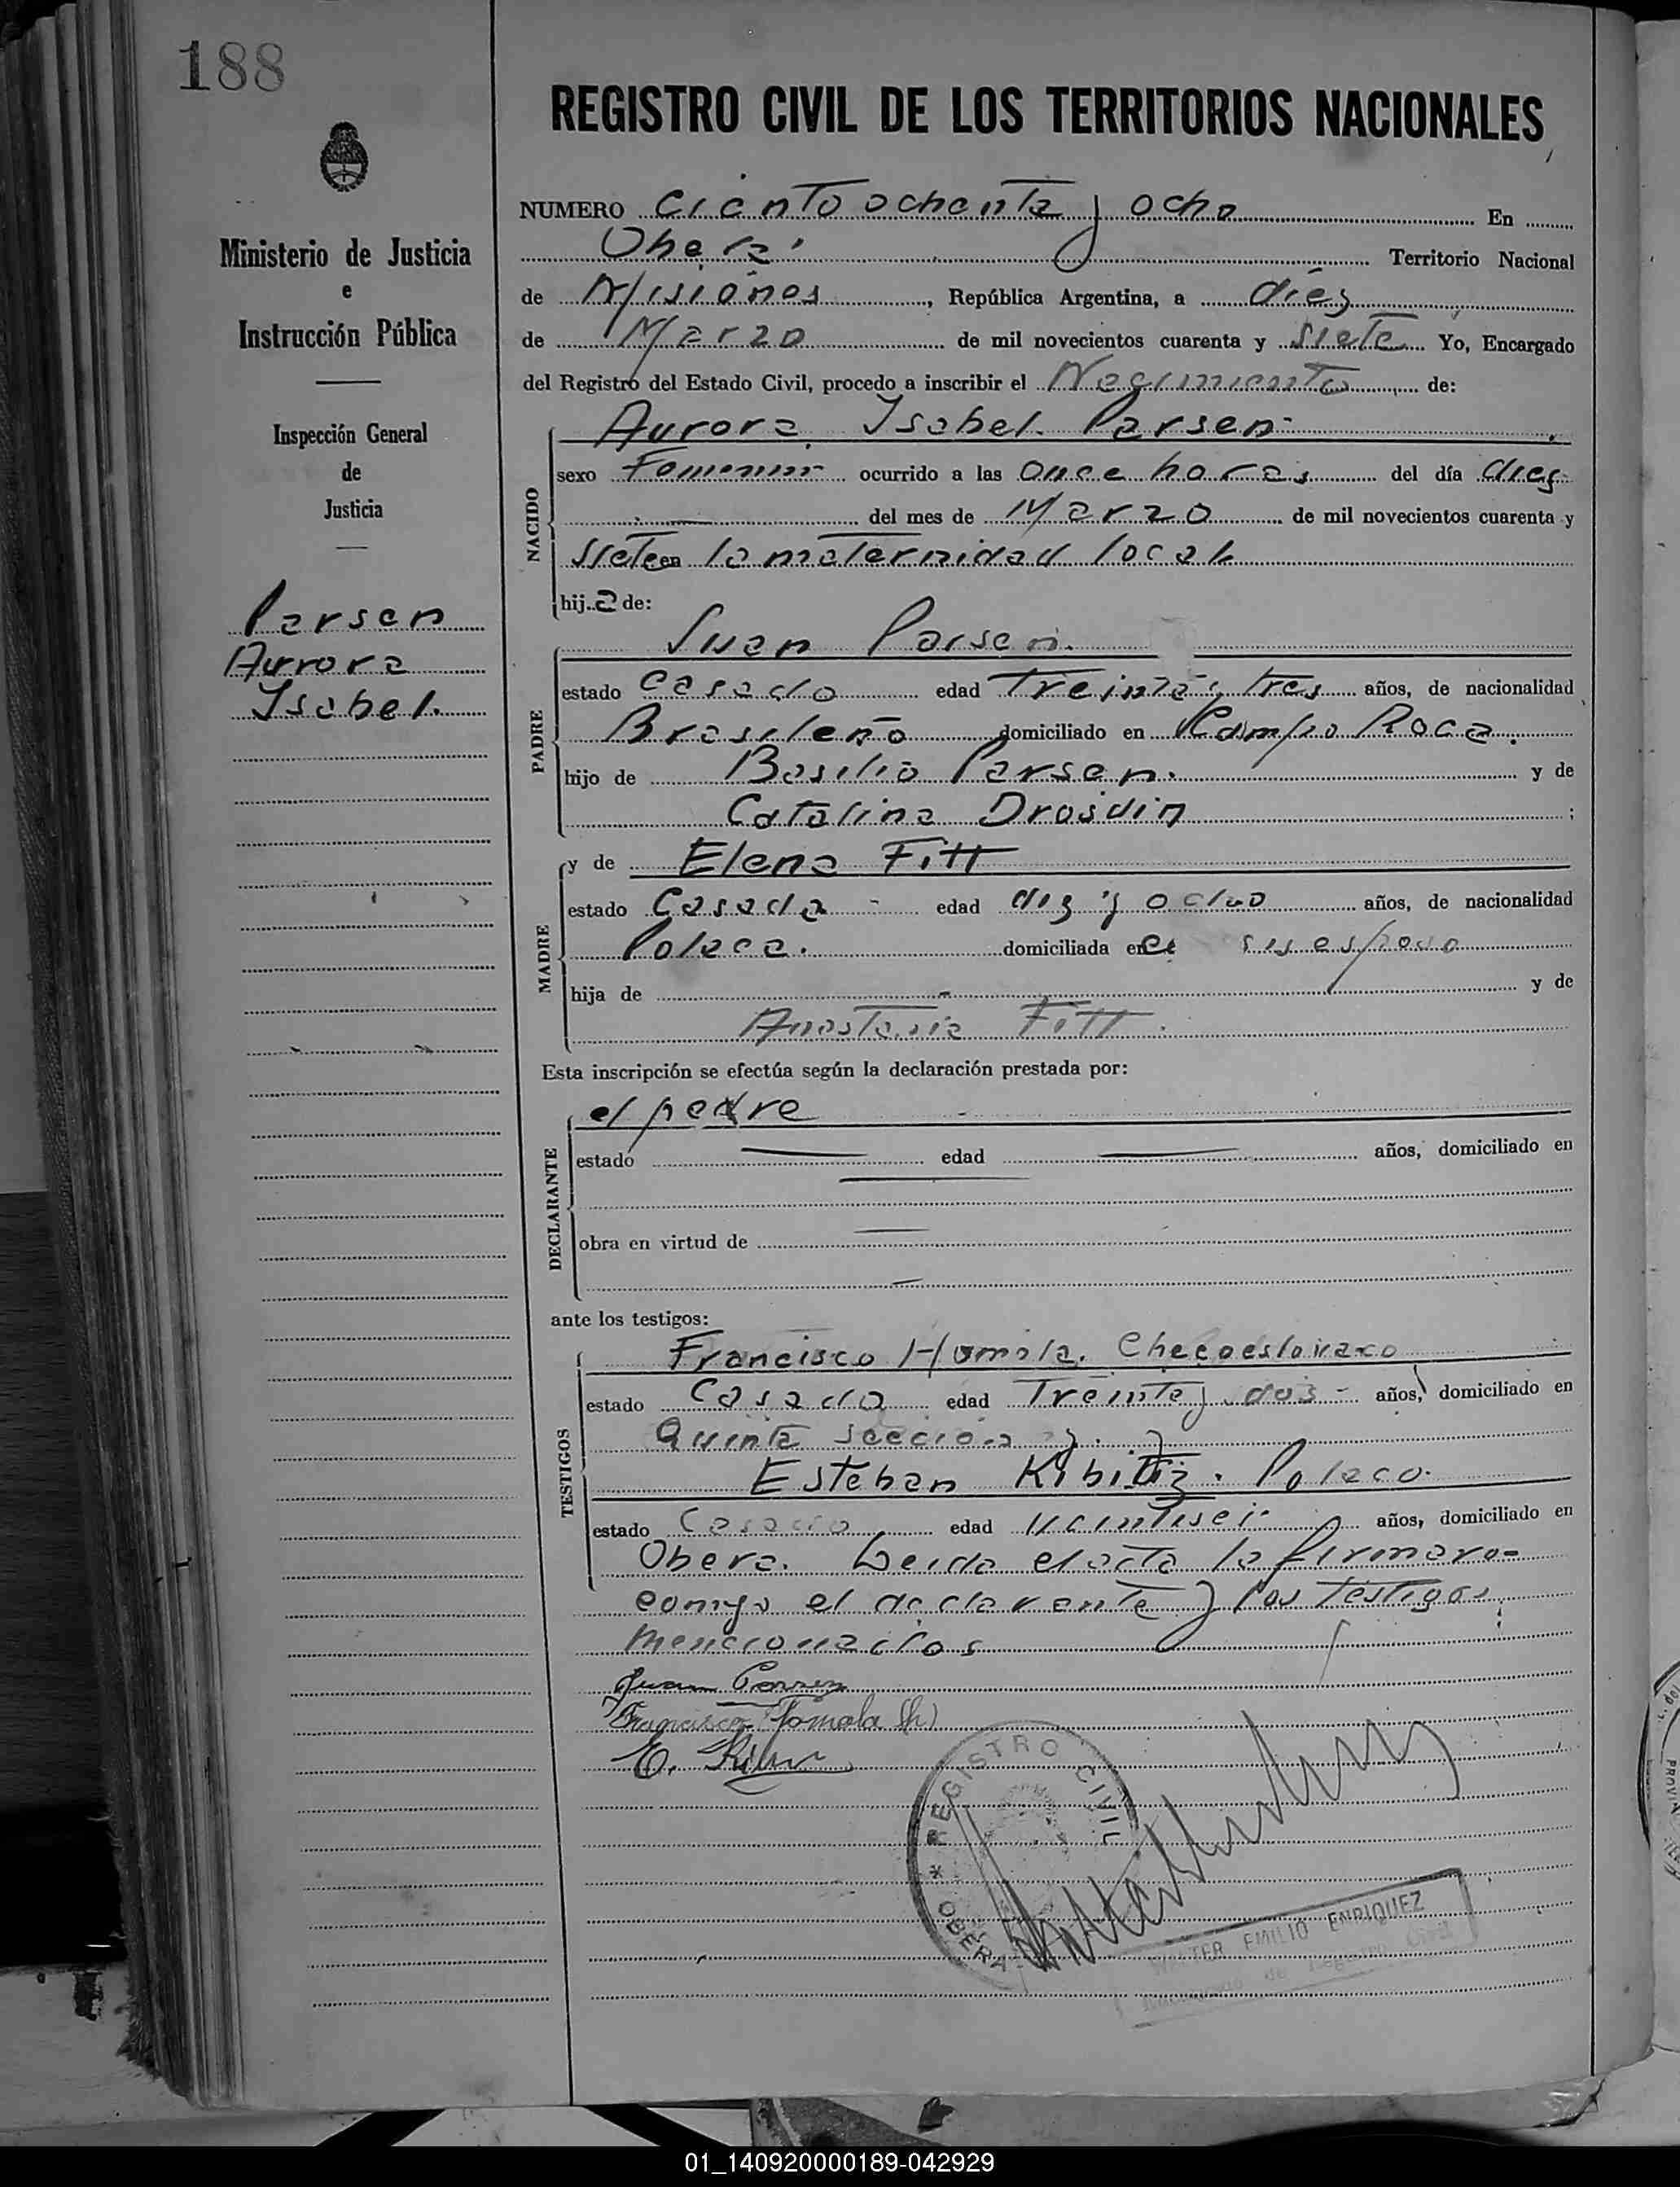 188
REGISTRO CIVIL DE LOS TERRITORIOS NACIONALES
Ministerio de Justicia
e
Instrucción Pública
Inspección General
de
Justicia
Parsen
Aurora
Isabel.
NUMERO Ciento ochenta y ocho En
Oberá Territorio Nacional
de Misiones, República Argentina, a diez
de Marzo de mil novecientos cuarenta y siete Yo, Encargado
del Registro del Estado Civil, procedo a inscribir el Nacimiento de:
NACIDO
Aurora Isabel Parsen
sexo Femenino ocurrido a las once horas del día diez
del mes de Marzo de mil novecientos cuarenta y
siete en la maternidad local
hija de:
PADRE
Juan Parsen.
estado casado edad treinta y tres años, de nacionalidad
Brasileño domiciliado en Campo Roca.
hijo de Basilio Parsen. y de
Catalina Drosdin;
MADRE
y de Elena Fitt
estado Casada edad diez y ocho años, de nacionalidad
Polaca. domiciliada en su esposo
hija de - y de
Anastasia Fitt.
Esta inscripción se efectúa según la declaración prestada por:
DECLARANTE
el padre
estado edad años, domiciliado en
obra en virtud de
ante los testigos:
TESTIGOS
Francisco Homola. Checoeslovaco
estado Casado edad Treinta y dos - años, domiciliado en
Quinta Sección y
Esteban Polaco.
estado Casado edad veintiseis años, domiciliado en
Obera. Leida el acta la firmaron
conmigo el declarante y los testigos
mencionados
Juan Parsen
Francisco Homola (h)
E.
REGISTRO CIVIL
* OBERA
WALTER EMILIO ENRIQUEZ
Encargado de Registro Civil
01_140920000189-042929